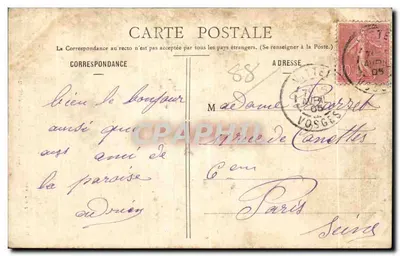 CARTE POSTALE
La Correspondance au recto n'est pas acceptée par tous les pays étrangers. (Se renseigner à la Poste.)
CORRESPONDANCE
ADRESSE
88
bien le bonjour
ainsi que
aux ami de
la paroise
adrien
Madame
rue de
6 em
Paris
Seine
VOSGES
05
CPARAMA